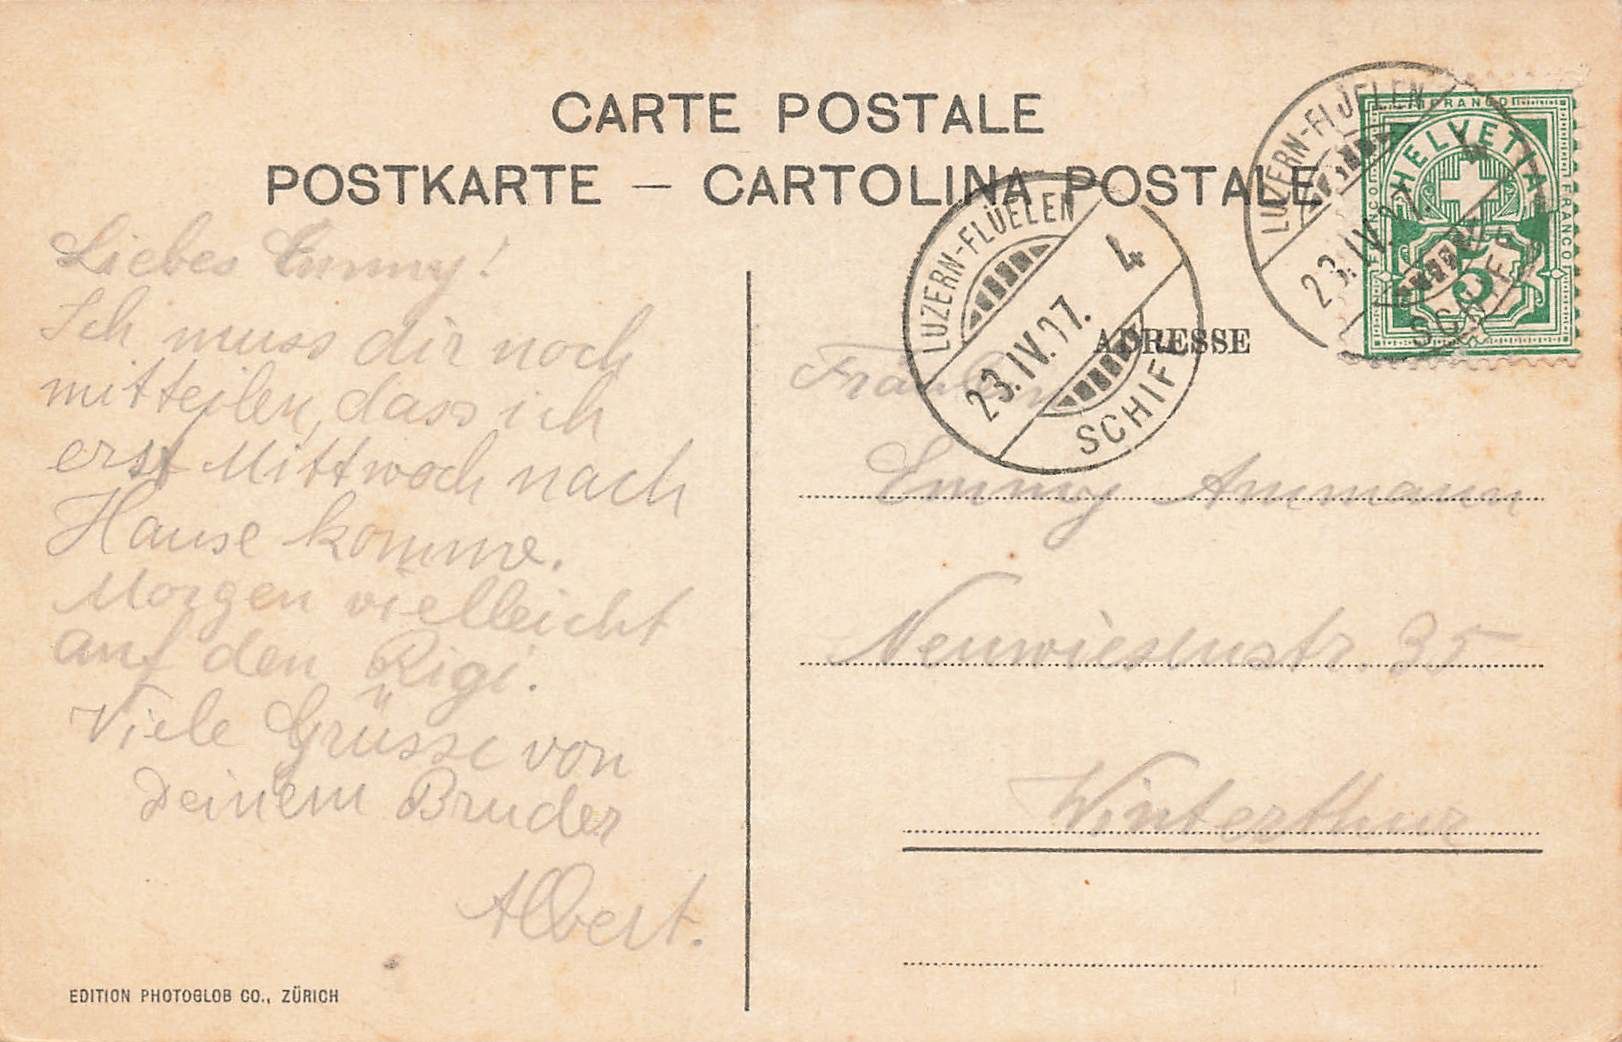 CARTE POSTALE
POSTKARTE – CARTOLINA POSTALE
Liebes Emmy!
Ich muss dir noch
mitteilen, dass ich
erst Mittwoch nach
Hause komme.
Morgen vielleicht
auf den Rigi.
Viele Grüsse von
Deinem Bruder
Albert.
EDITION PHOTOGLOB CO., ZÜRICH
LUZERN-FLÜELEN
4
23.IV.07.
SCHIFF
LUZERN-FLÜELEN
23.IV.07.
SCHIFF
FRANCO
HELVETIA
FRANCO
5
ADRESSE
Fräulein
Emmy Ammann
Neuwiesenstr. 35
Winterthur